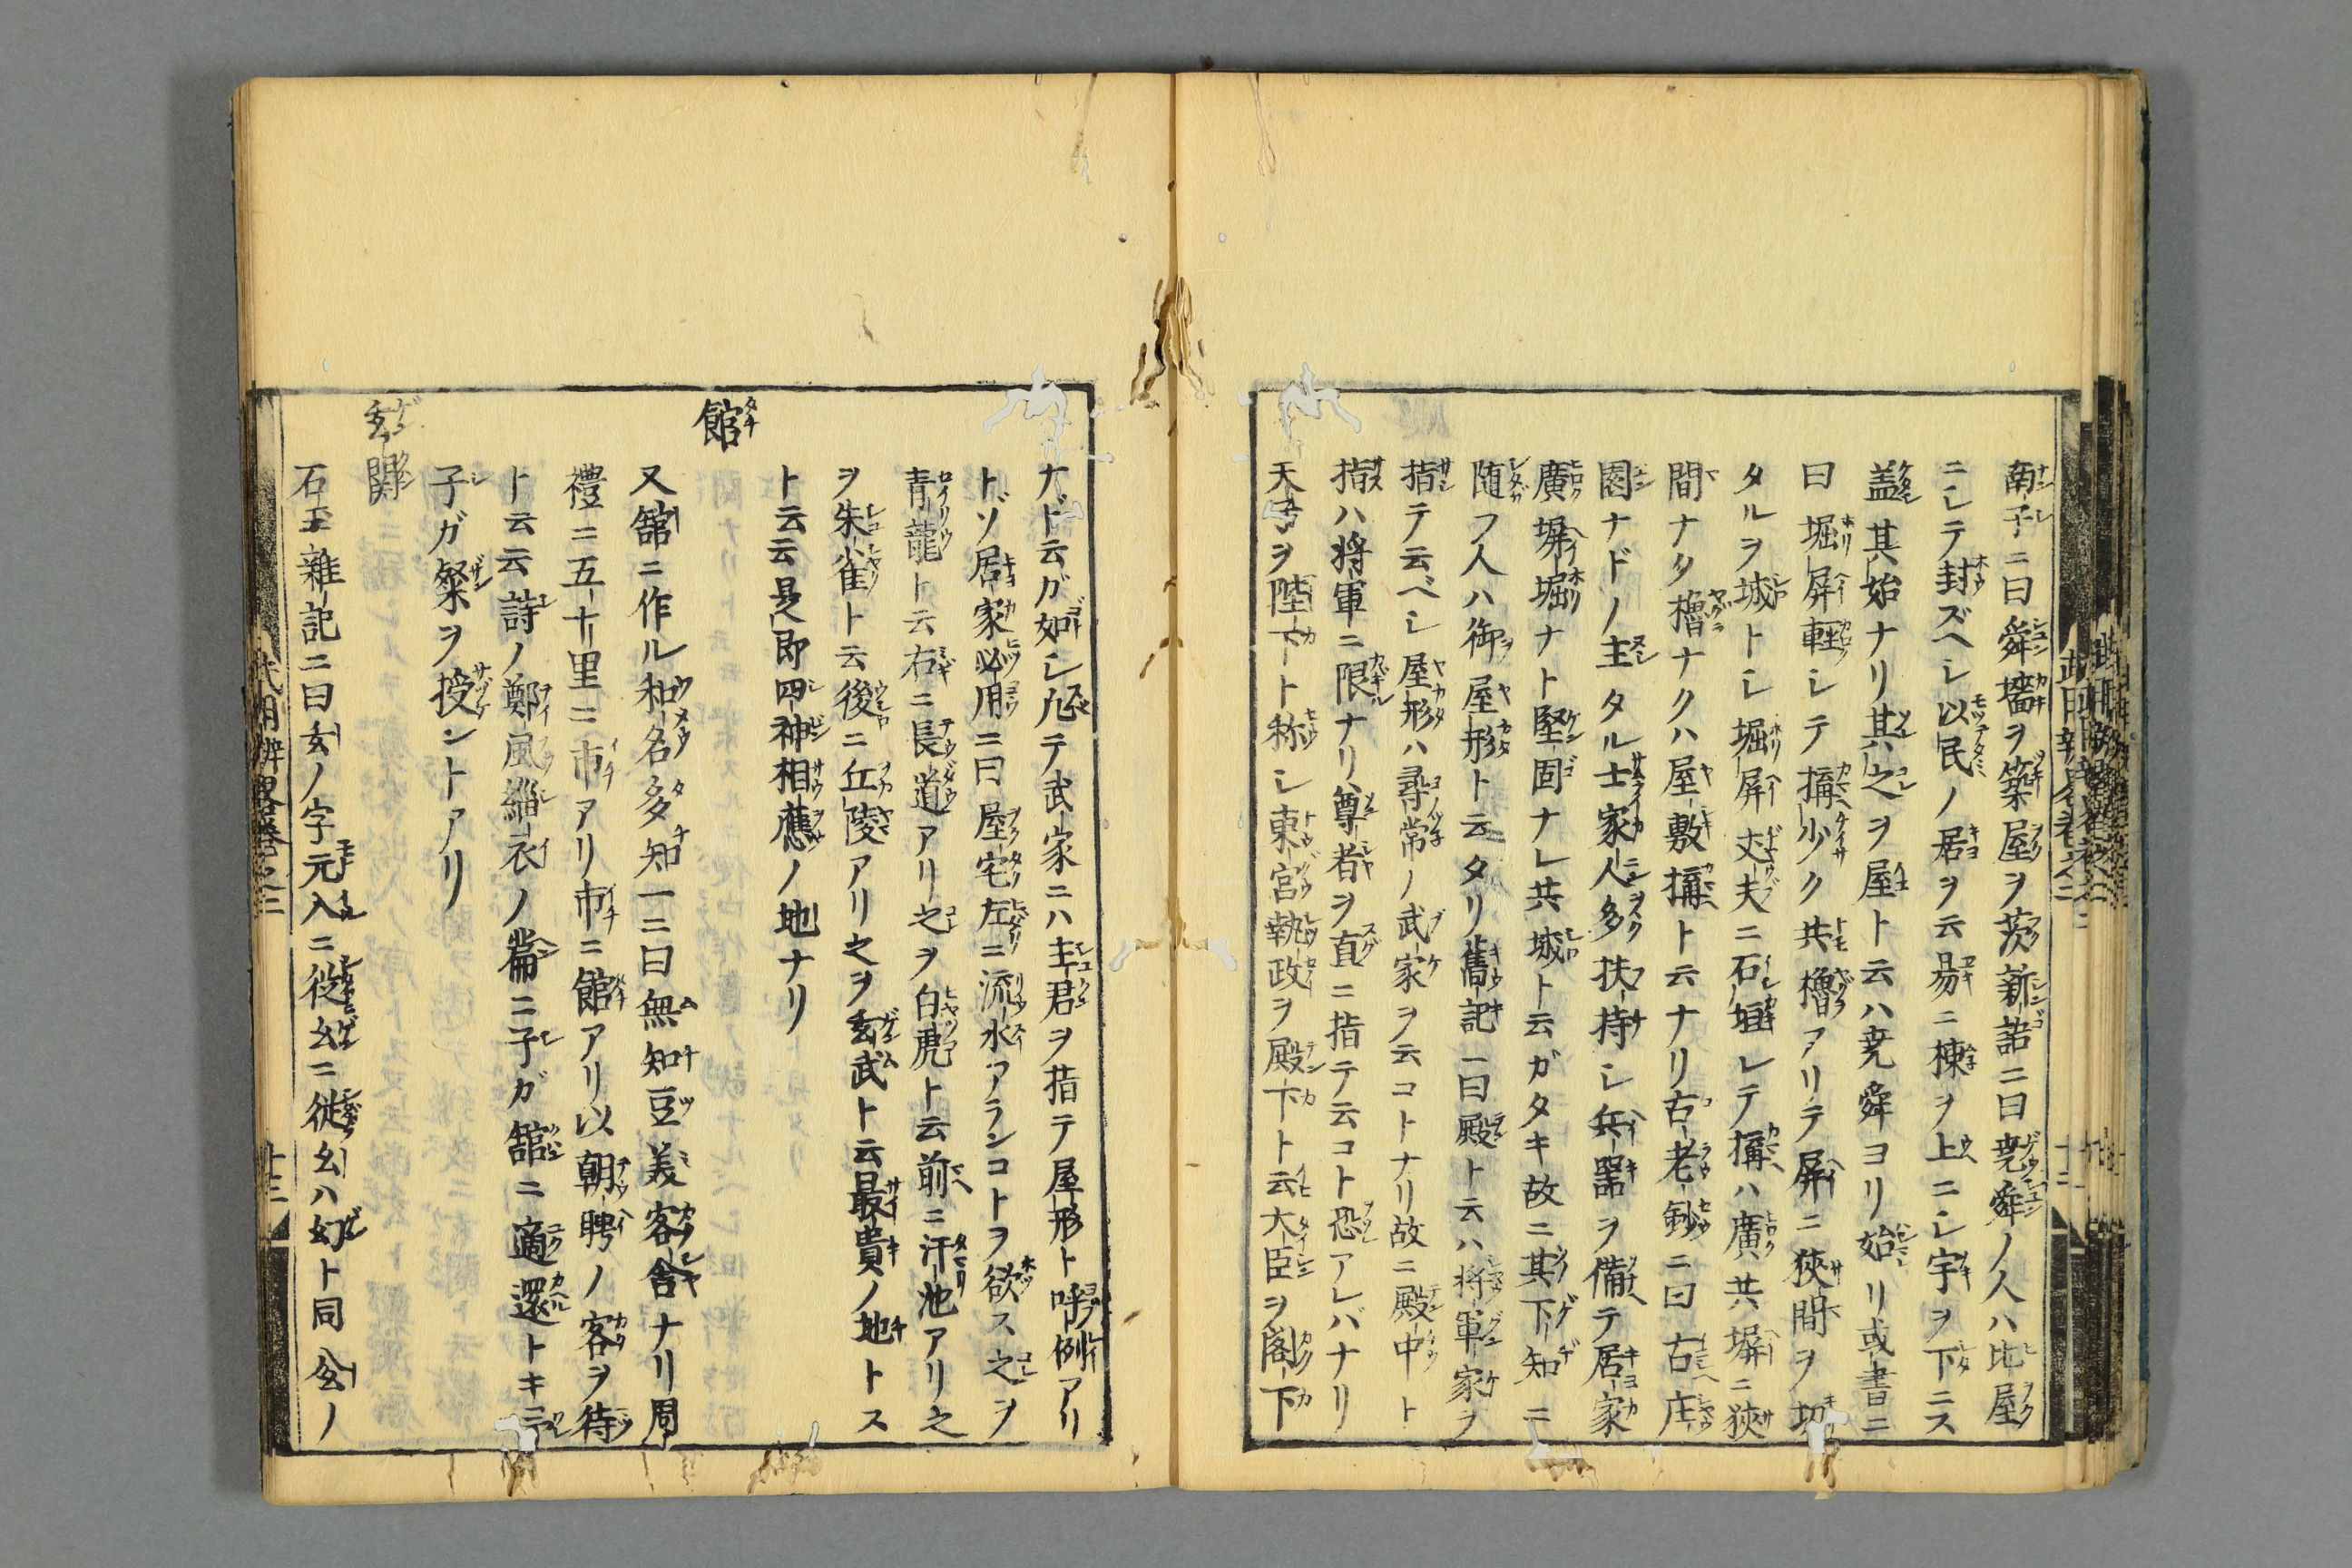 南子ニ曰舜墻ヲ築屋ヲ茨新語ニ曰尭舜ノ人ハ比屋
ニシテ封ズヘシ以民ノ居ヲ云易ニ棟ヲ上ニシ宇ヲ下ニス
蓋其始ナリ其之ヲ屋ト云ハ尭舜ヨリ始リ或書ニ
曰堀屏軽シテ搆少ク共櫓アリテ屏ニ狹間ヲ切
タルヲ城トシ堀屏丈夫ニ石垣シテ搆ハ廣共塀ニ狹
間ナタ櫓ナクハ屋敷搆ト云ナリ古老鈔ニ曰古庄
園ナドノ主タル士家人多扶持シ兵器ヲ備テ居家
廣塀堀ナト堅固ナレ共城ト云ガタキ故ニ其下知ニ
随フ人ハ御屋形ト云タリ舊記ニ曰殿ト云ハ將軍家ヲ
指テ云ベシ屋形ハ尋常ノ武家ヲ云コトナリ故ニ殿中ト
指ハ将軍ニ限ナリ尊者ヲ直ニ指テ云コト恐アレバナリ
天子ヲ陛下ト称シ東宮執政ヲ殿下ト云大臣ヲ閣下
ナド云ガ如シ凡テ武家ニハ主君ヲ指テ屋形ト呼例アリ
トゾ居家必用ニ曰屋宅左ニ流水アランコトヲ欲ス之ヲ
青龍ト云右ニ長道アリ之ヲ白虎ト云前ニ汗池アリ之
ヲ朱雀ト云後ニ丘陵アリ之ヲ玄武ト云最貴ノ地トス
ト云云是即四神相應ノ地ナリ
館
又舘ニ作ル和名多知一ニ曰無知豆美客舎ナリ周
禮ニ五十里ニ市アリ市ニ館アリ以朝聘ノ客ヲ待
ト云云詩ノ鄭風緇衣ノ篇ニ子ガ舘ニ適還トキニ
子ガ粲ヲ授ントアリ
玄関
石玉雜記ニ曰玄ノ字元入ニ從幺ニ従幺ハ幻ト同玄ノ
武用辨畧巻之二
十三